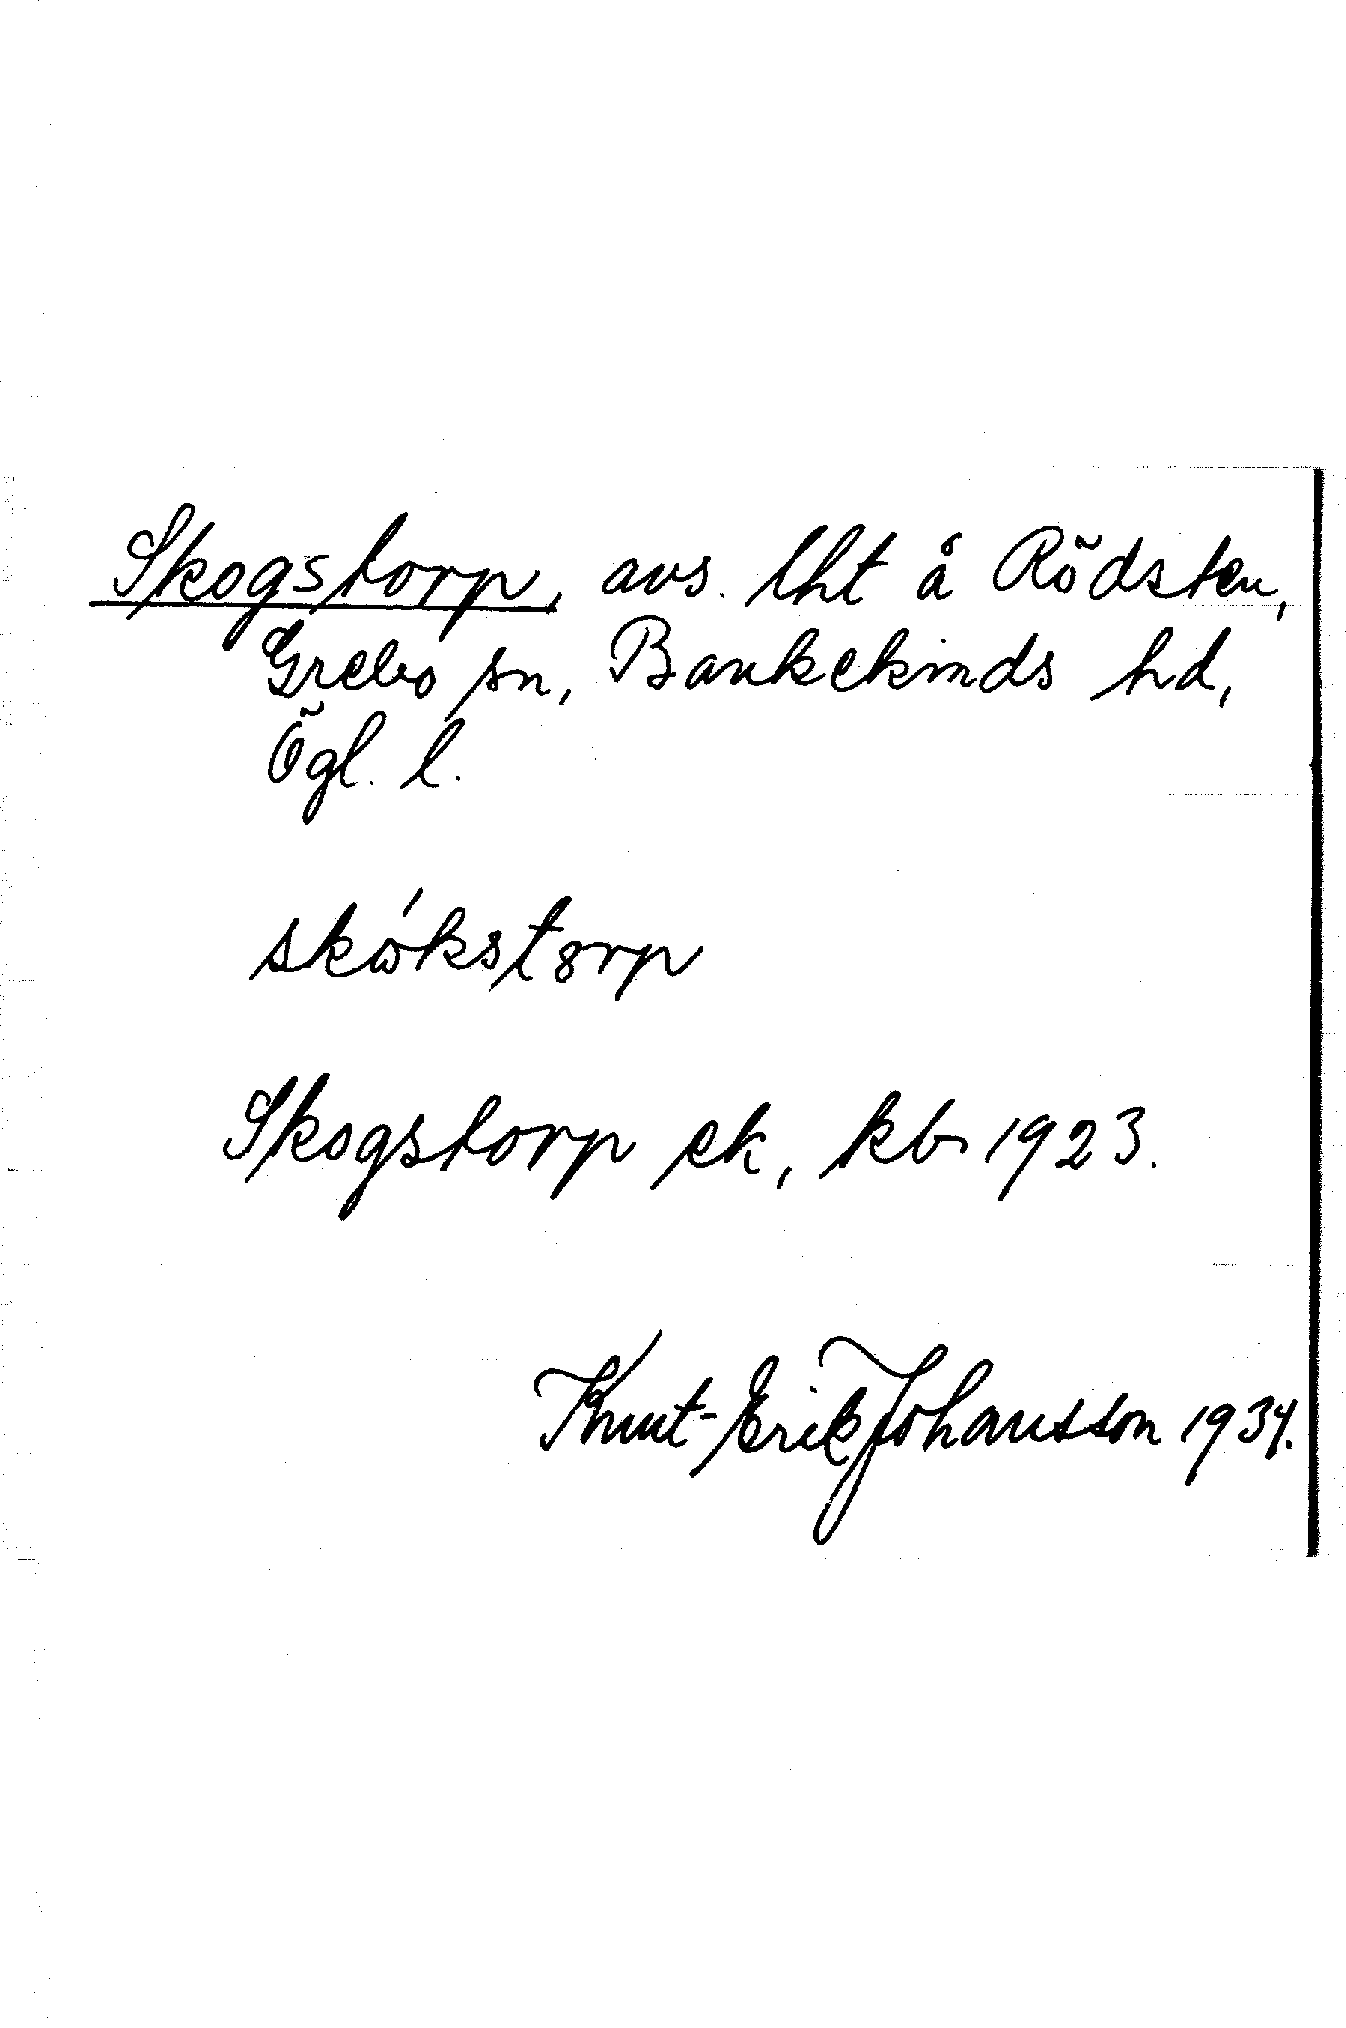 Skogstorp, avs. lht å Rödsten,
Grebo sn, Bankekinds hd,
Ögl. l.
skökstorp
Skogstorp ek, kb 1923.
Knut-Erik Johansson 1934.